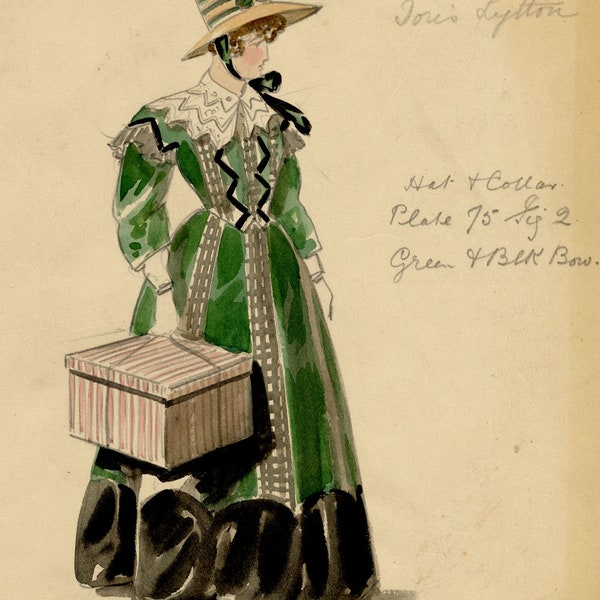 Doris Lytton
Hat & Collar.
Plate 75 Fig 2.
Green & Blk Bow.